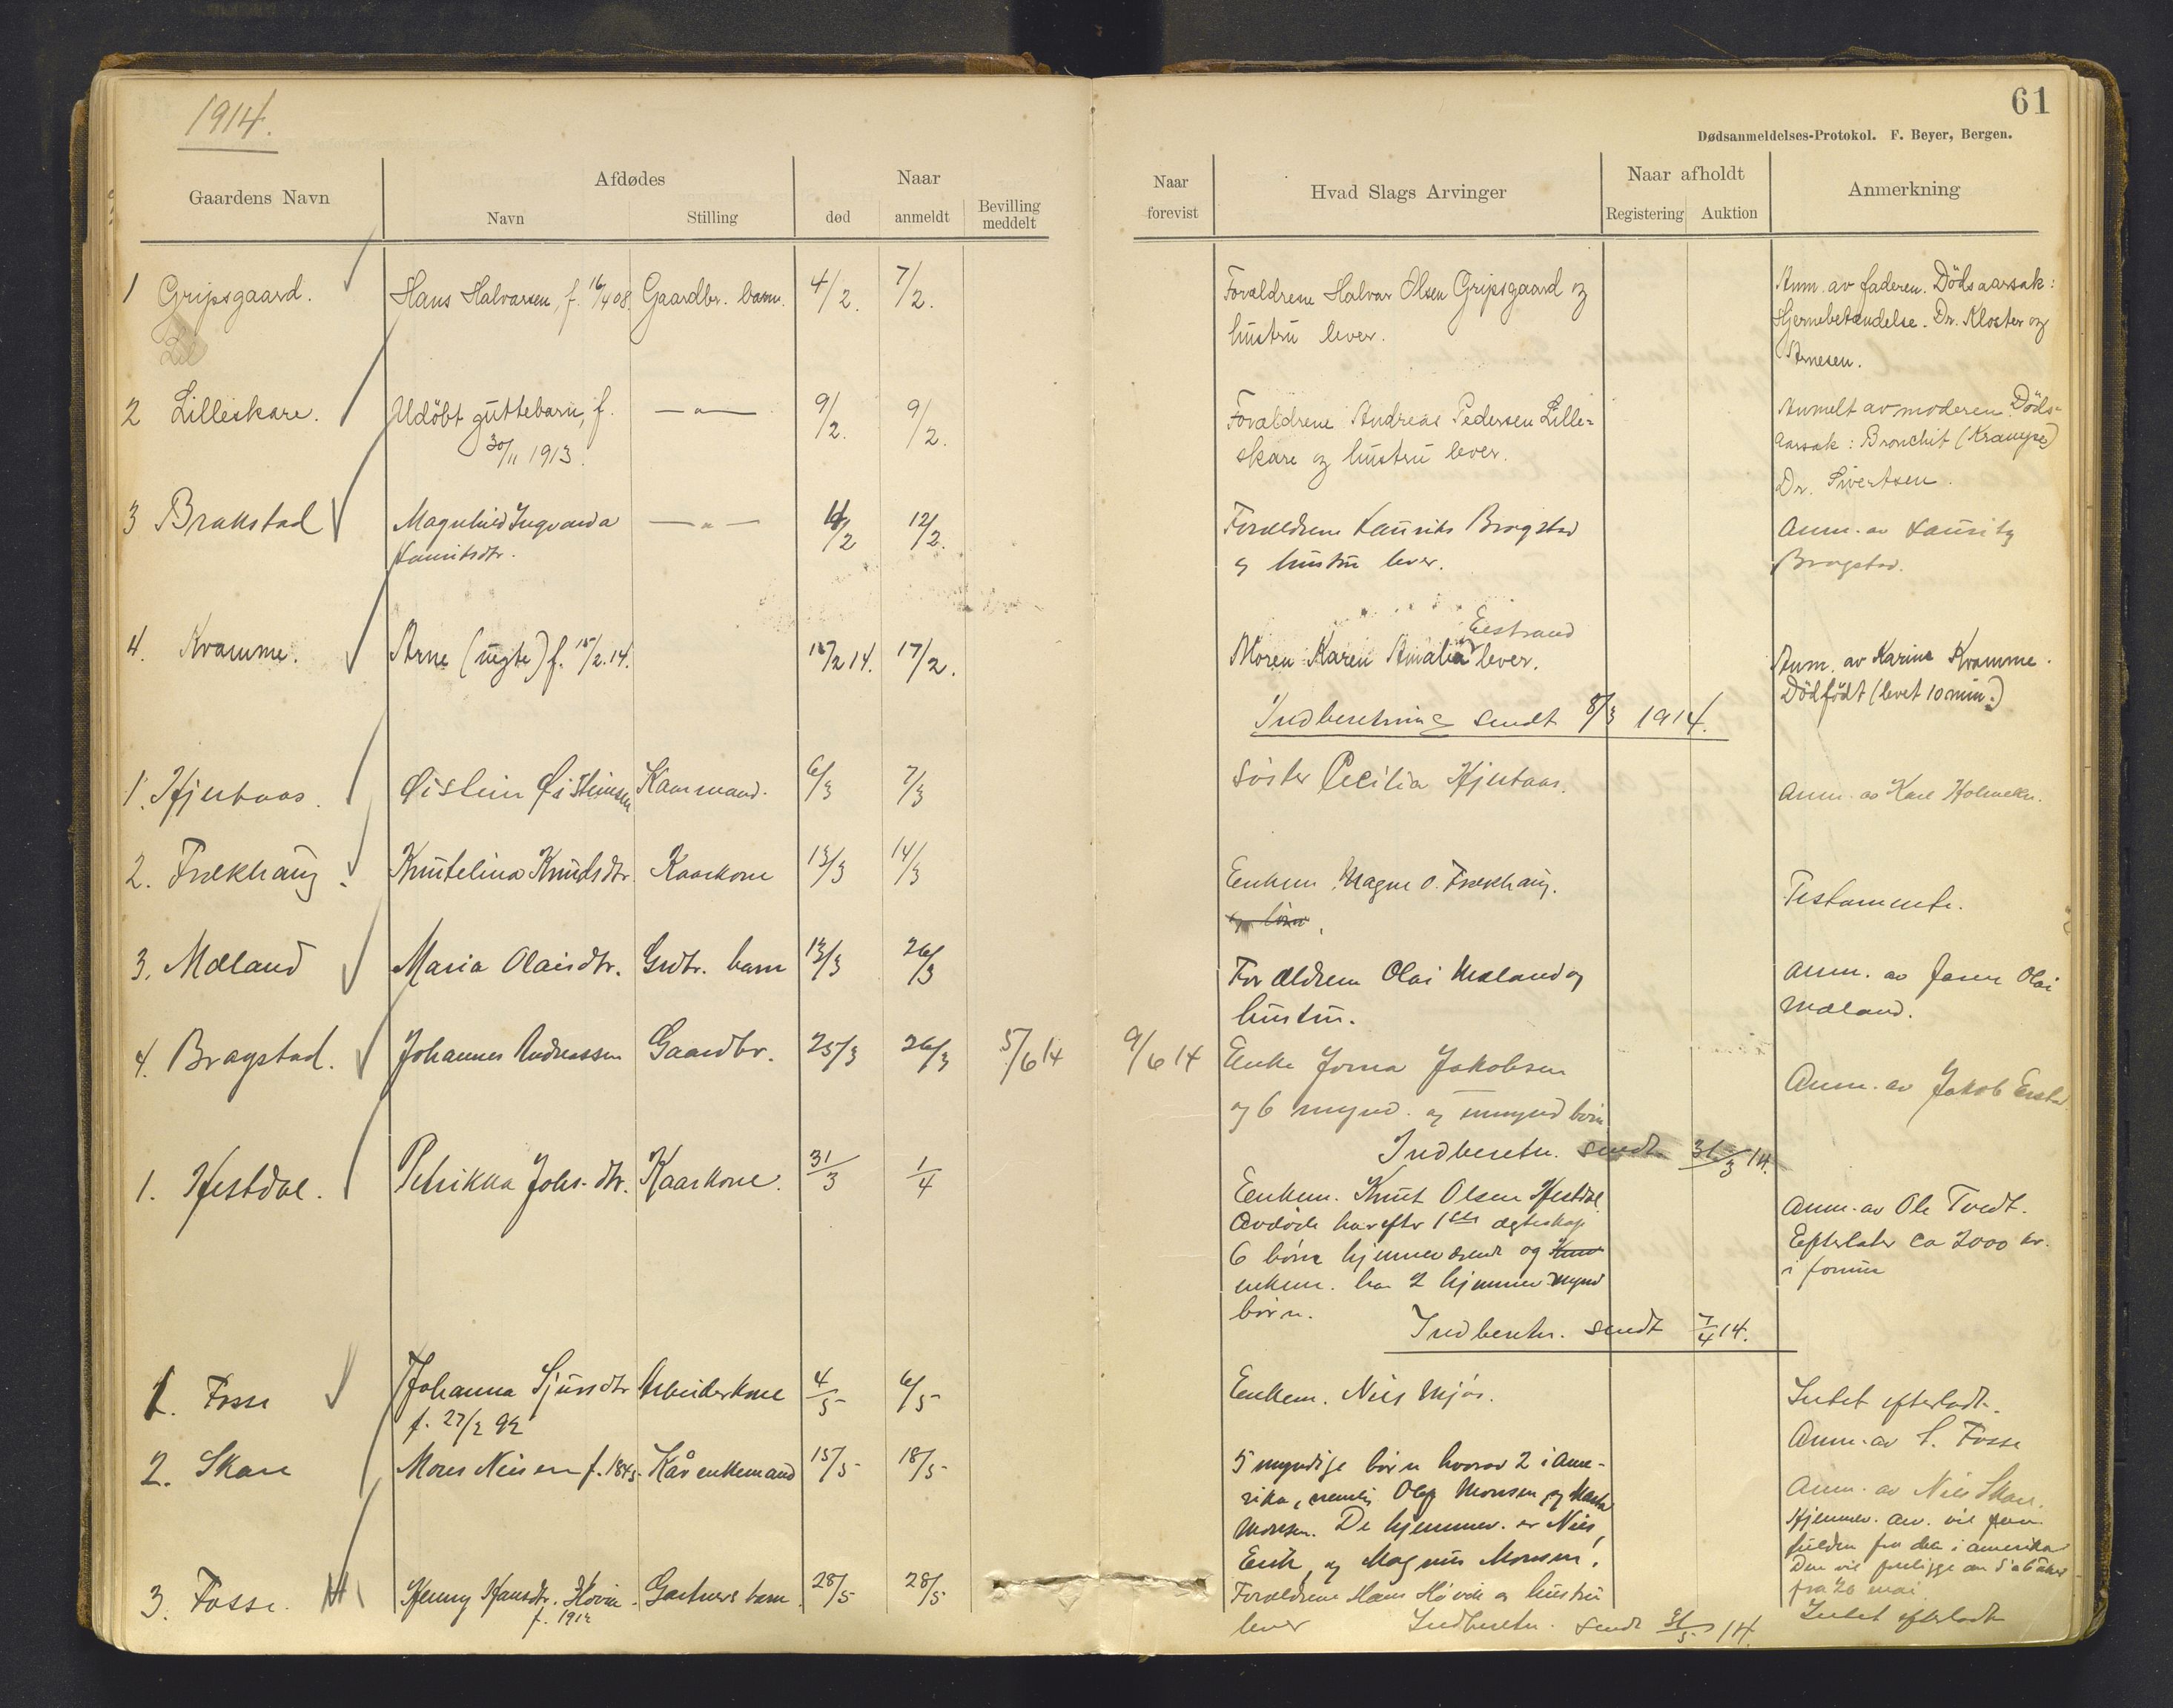 1914.
61
Dødsanmeldelses-Protokol. F. Beyer, Bergen.
Gaardens Navn
Afdødes
Navn
Stilling
Naar
død
anmeldt
Bevilling
meddelt
Naar
forevist
Hvad Slags Arvinger
Naar afholdt
Registering
Auktion
Anmerkning
1 Gripsgaard. Hans Halvarsen, f. 16/4 08. Gaardbr. barn. 4/2. 7/2. Forældrene Halvar Olsen Gripsgaard og
hustru lever.
Anm. av faderen. Dödsaarsak:
Hjernebetændelse. Dr. Kloster og
Arnesen.
Lil
2 Lilleskare. Udöbt guttebarn, f. —〃— 9/2. 9/2. Forældrene Andreas Pedersen Lille-
30/11 1913.
skare og hustru lever.
Anmelt av moderen. Döds-
aarsak: Bronchit (Krampe)
Dr. Sivertsen.
3 Brakstad Magnhild Ingvarda —〃— 12/2. Forældrene Laurits Brogstad
Lauritsdtr.
og hustru lever.
Anm. av Laurits
Brogstad.
4. Kvamme. Arne (uegte) f. 15/2.14. 15/2 14. 17/2. Moren Karen Amalia Eistrand lever.
Anm. av Karina Kvamme.
Dödfödt (levet 10 min.)
Indberetning sendt 8/3 1914.
1. Hjertaas. Øistein Øisteinsen Kaarmand. 6/3 7/3 Søster Cecilia Hjertaas.
Anm. av Karl
2. Frekhaug. Knutelina Knutsdtr. Kaarkone 13/3 14/3 Enkem. Magne O. Frekhaug.
og börn
Testamente.
3. Mæland Maria Olaisdtr. Grdbr. barn 13/3 26/3 Forældrene Olai Mæland og
hustru.
Anm. av faren Olai
Mæland.
4. Bragstad. Johannes Andreassen Gaardbr. 25/3 26/3 5/6 14 9/6 14 Enke Jorna Jakobsen
og 6 mynd. og umynd börn
Anm. av Jakob
Indberetn. sendt 31/3 14.
1. Hestdal. Petrikka Johs.dtr. Kaarkone. 31/3 1/4 Enkem. Knut Olsen Hestdal
Avdöde har efter 1ste ægteskap
6 börn hjemmeværende og
enkem. har 2 hjemmev. mynd
börn.
Anm. av Ole Tvedt.
Efterlater ca 2000 kr.
i formue
Indberetn. sendt 7/4 14.
1. Fosse Johanna Sjursdtr Arbeiderkone 4/5 6/5 Enkem. Nils Mjös.
f. 27/2 92
Intet efterladt.
Anm. av S. Fosse
2. Skare Mons Nilsen f. 1845. Kårenkemand 15/5 18/5 5 myndige börn hvorav 2 i Ame-
rika, nemlig Olai Monsen og Marta
Monsen. De hjemmev. er Nils,
Erik og Magnus Monsen.
Anm. av Nils Skare.
Hjemmev. arv. vil
fra dem i Amerika
Den vil foreligge om 5 a 6 uker
fra 20 mai
3. Fosse. Jenny Hansdtr. Hövik. Gartners barn. 28/5 28/5 Forældrene Hans Hövik og hustru
f. 1912
lever
Indberetn. sendt 31/5 14.
Intet efterladt